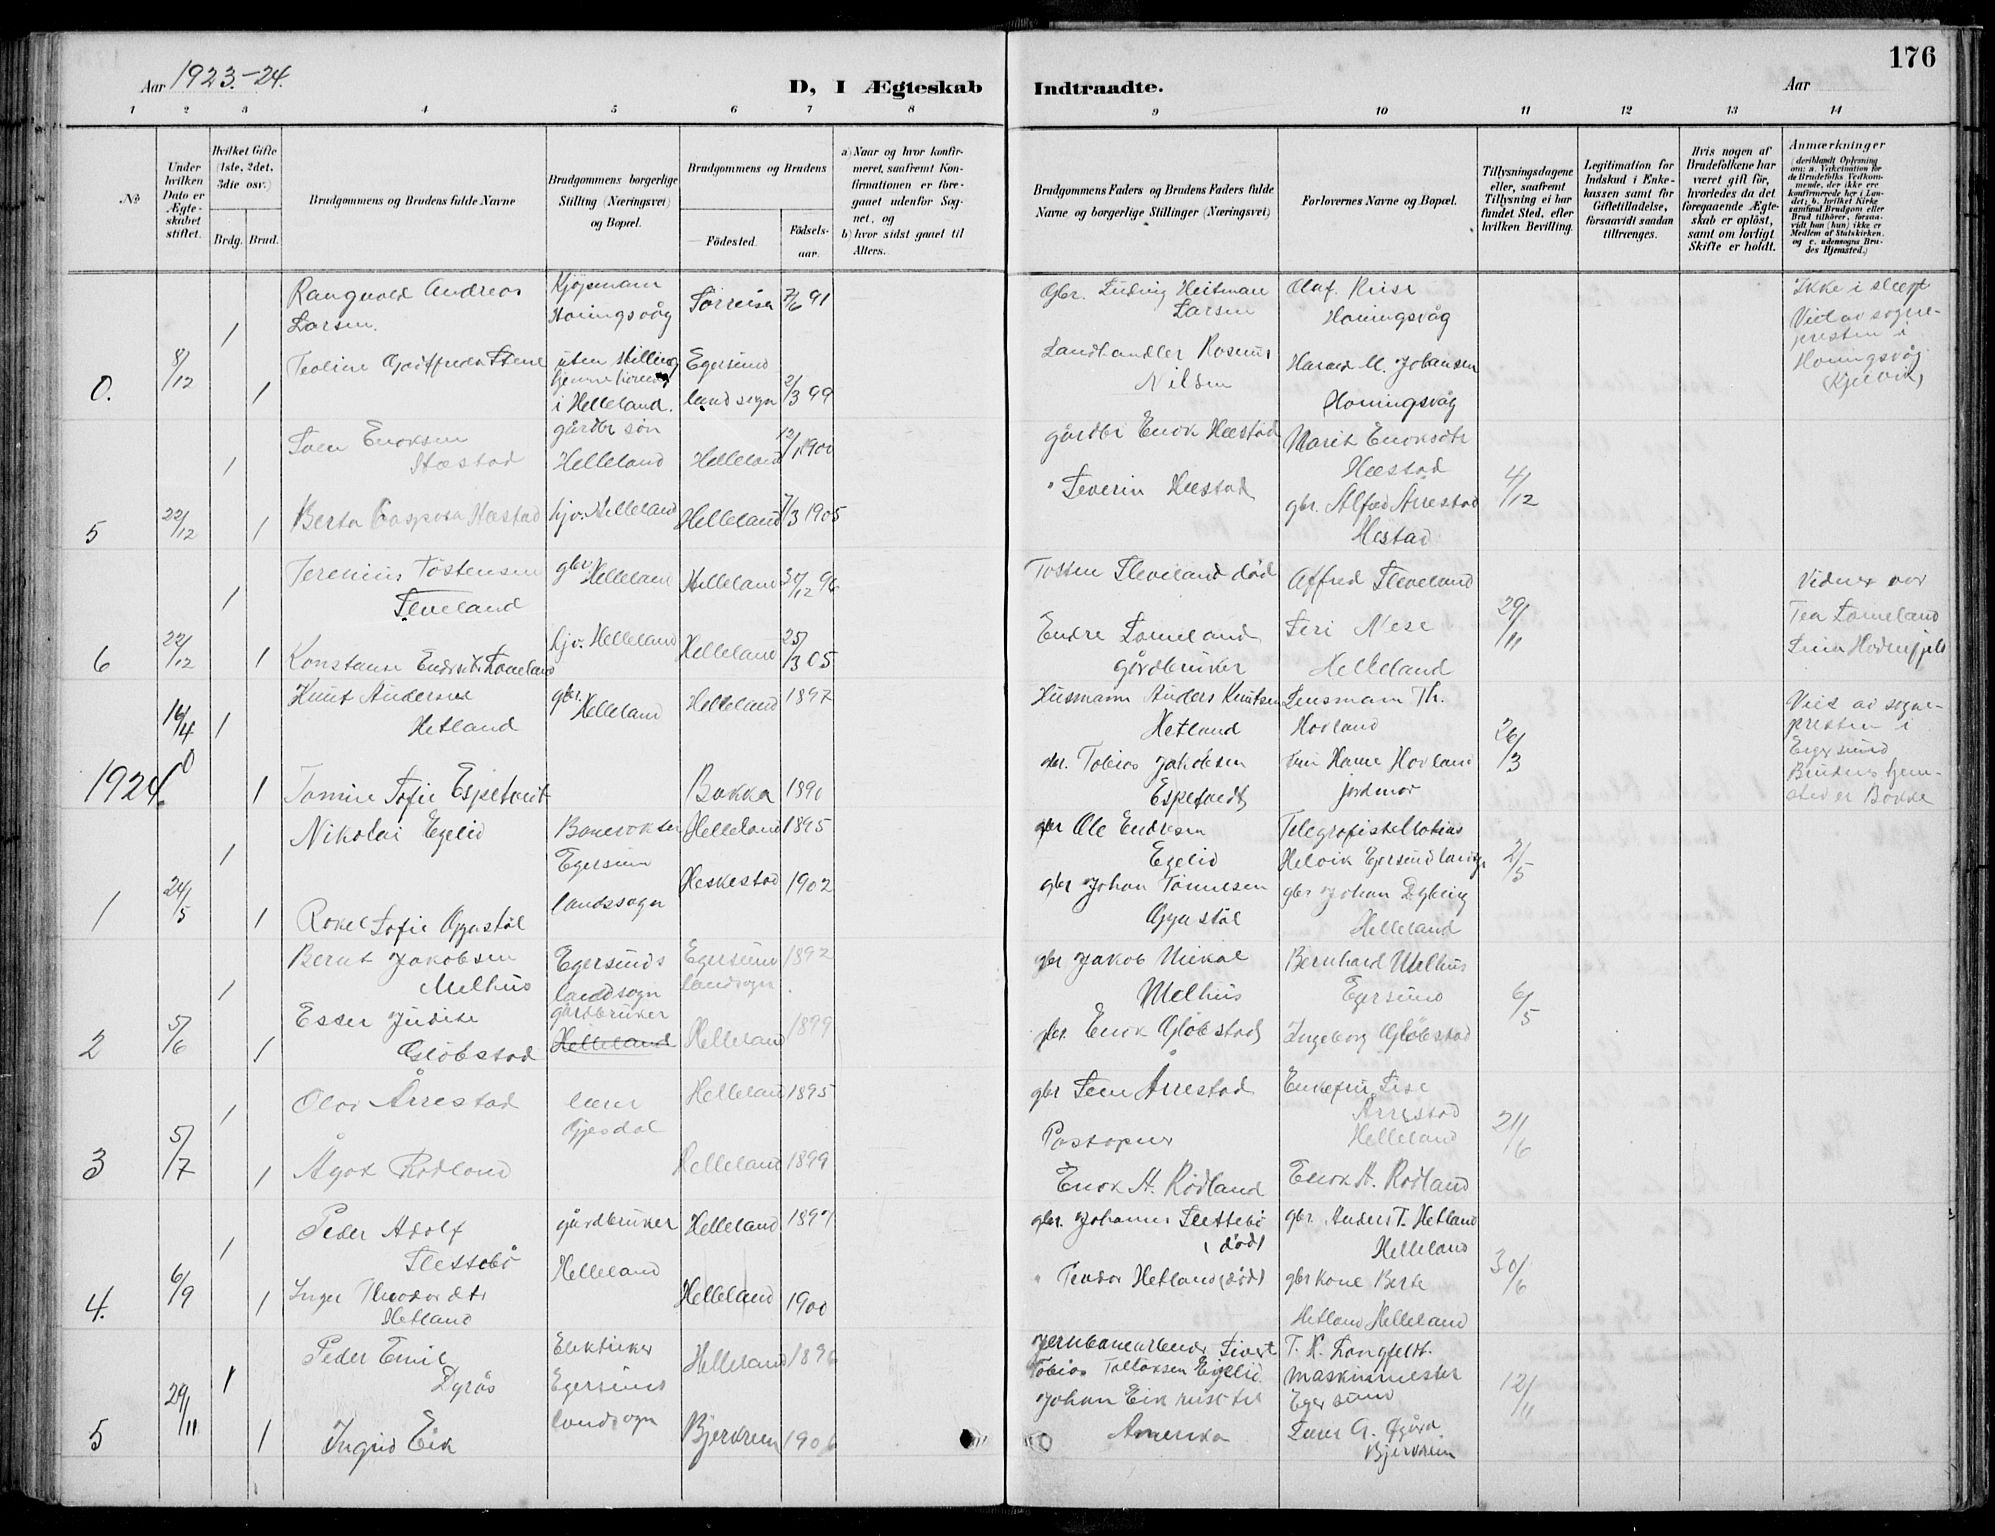 176
Aar 1923.-24.
D, I Ægteskab
Indtraadte.
Aar
1 2 3 4 5 6 7 8
9 10 11 12 13 14
No
Under hvilken Dato er Ægteskabet stiftet.
Hvilket Gifte (1ste, 2det, 3die osv.)
Brdg. Brud.
Brudgommens og Brudens fulde Navne
Brudgommens borgerlige Stilling (Næringsvei) og Bopæl.
Brudgommens og Brudens
Fødested.
Fødselsaar.
a) Naar og hvor konfirmeret, saafremt Konfirmationen er foregaaet udenfor Sognet, og
b) hvor sidst gaaet til Alters.
Brudgommens Faders og Brudens Faders fulde Navne og borgerlige Stillinger (Næringsvei)
Forlovernes Navne og Bopæl.
Tillysningsdagene eller, saafremt Tillysning ei har fundet Sted, efter hvilken Bevilling.
Legitimation for Indskud i Enkekassen samt for Giftetilladelse, forsaavidt saadan tiltrænges.
Hvis nogen af Brudefolkene har været gift før, hvorledes da det foregaaende Ægteskab er opløst, samt om lovligt Skifte er holdt.
Anmærkninger
(deriblandt Oplysning om: a. Vakcination for de Brudefolks Vedkommende, der ikke ere konfirmerede her i Landet; b. hvilket Kirkesamfund Brudgom eller Brud tilhører, forsaavidt han (hun) ikke er Medlem af Statskirken. og c. udensogns Brudes Hjemsted.)
Rangvald Andreas
Larsen.
Kjøpmann
Honingsvåg
Sørreisa
7/6 91
Gbr. Ludvig Heitman
Larsen
Olaf. Riise
Honingsvåg
Ikke i slegt
Viet av sogne-
presten i
Honingsvåg
(Kjelvik)
0.
8/12
1
1
Teoline Gotfreda Stene
uten stilling
hjemmehørende
i Helleland.
Egersund
landsogn
2/3 99
Landhandler Rasmus
Nilsen
Harald M. Johansen
Honingsvåg
5
22/12
1
1
Sven Enoksen
Hæstad
gårdbr søn
Helleland
Helleland
12/1 1900
gårdbr Enok Hæstad
Marit Enoksdtr
Hæstad
4/12
Berta Caspara Hæstad
hjv. Helleland
Helleland
7/3 1905
" Severin Hæstad
gbr. Alfred Årrestad
Hæstad
6
22/12
1
1
Jeremias Tostensen
Sleveland
gbr. Helleland
Helleland
30/12 96
Tosten Sleveland død
Alfred Sleveland
29/11
Vidner var
Tea Lomeland
Konstanse Endresdtr Lomeland
hjv. Helleland
Helleland
25/3 05
Endre Lomeland
gårdbruker
Seri Nese
Helleland
16/4
1
1
Knut Andersen
Hetland
gbr. Helleland
Helleland
1897
Husmann Anders Knutsen
Hetland
Lensmann Th.
Hovland
26/3
Viet av sogne-
presten i
Egersund
Brudens hjem-
sted er Bakke
1924.
0
Tomine Sofie Espetveit
Bakka
1890
gbr. Tobias Jakobsen
Espetveit
Fru Hanne Hovland
jordmor
1
24/5
1
1
Nikolai Egelid
Banevokter
Egersund
landssogn
Helleland
1895
gbr Ole Endresen
Egelid
Telegrafist Mathias
Helvik Egersund landsogn
2/5
Rakel Sofie Gyastøl
Heskestad
1902
gbr Johan Tønnesen
Gyastøl
gbr Johan Dybing
Helleland
2
5/6
1
1
Bernt Jakobsen
Melhus
Egersunds
landsogn
gårdbruker
Egersund
landsogn.
1892
gbr Jakob Mikal
Melhus
Bernhard Melhus
Egersund
6/5
Ester Judith
Gløbstad
Helleland
Helleland
1899
gbr. Enok Gløbstad
Ingeborg Gløbstad
3
5/7
1
1
Olav Årrestad
lærer
Gjesdal
Helleland
1895
gbr Sven Årrestad
Enkefru Lise
Årrestad
Helleland
21/6
Ågot Rødland
Helleland
1899
Postapner
Enok A. Rødland
Enok A. Rødland
4.
6/9
1
1
Peder Adolf
Slettebø
gårdbruker
Helleland
Helleland
1897
gbr. Johannes Slettebø
(død)
gbr. Anders T. Hetland
Helleland
30/6
Inger Theodordtr
Hetland
Helleland
1900
" Teodor Hetland (død)
gbr kone Berte
Hetland Helleland
5
29/11
1
1
Peder Emil
Dyrås
Elektriker
Egersund
landsogn
Helleland
1896
Jernbanearbeider Sivert
Tobias Tollaksen Eigelid
T. K. Langfeldt.
maskinmester
Egersund
12/11
Ingrid Eik
Bjerkreim
1906
Johan Eik reist til
Amerika
Bjerkreim